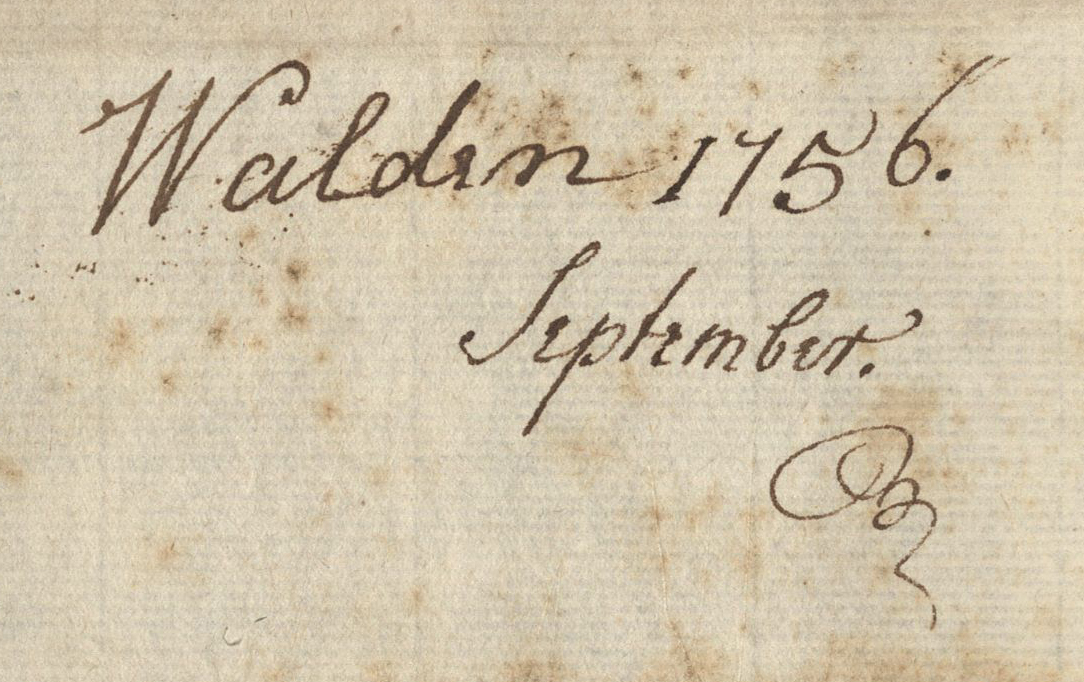 Walden 1756.
September.